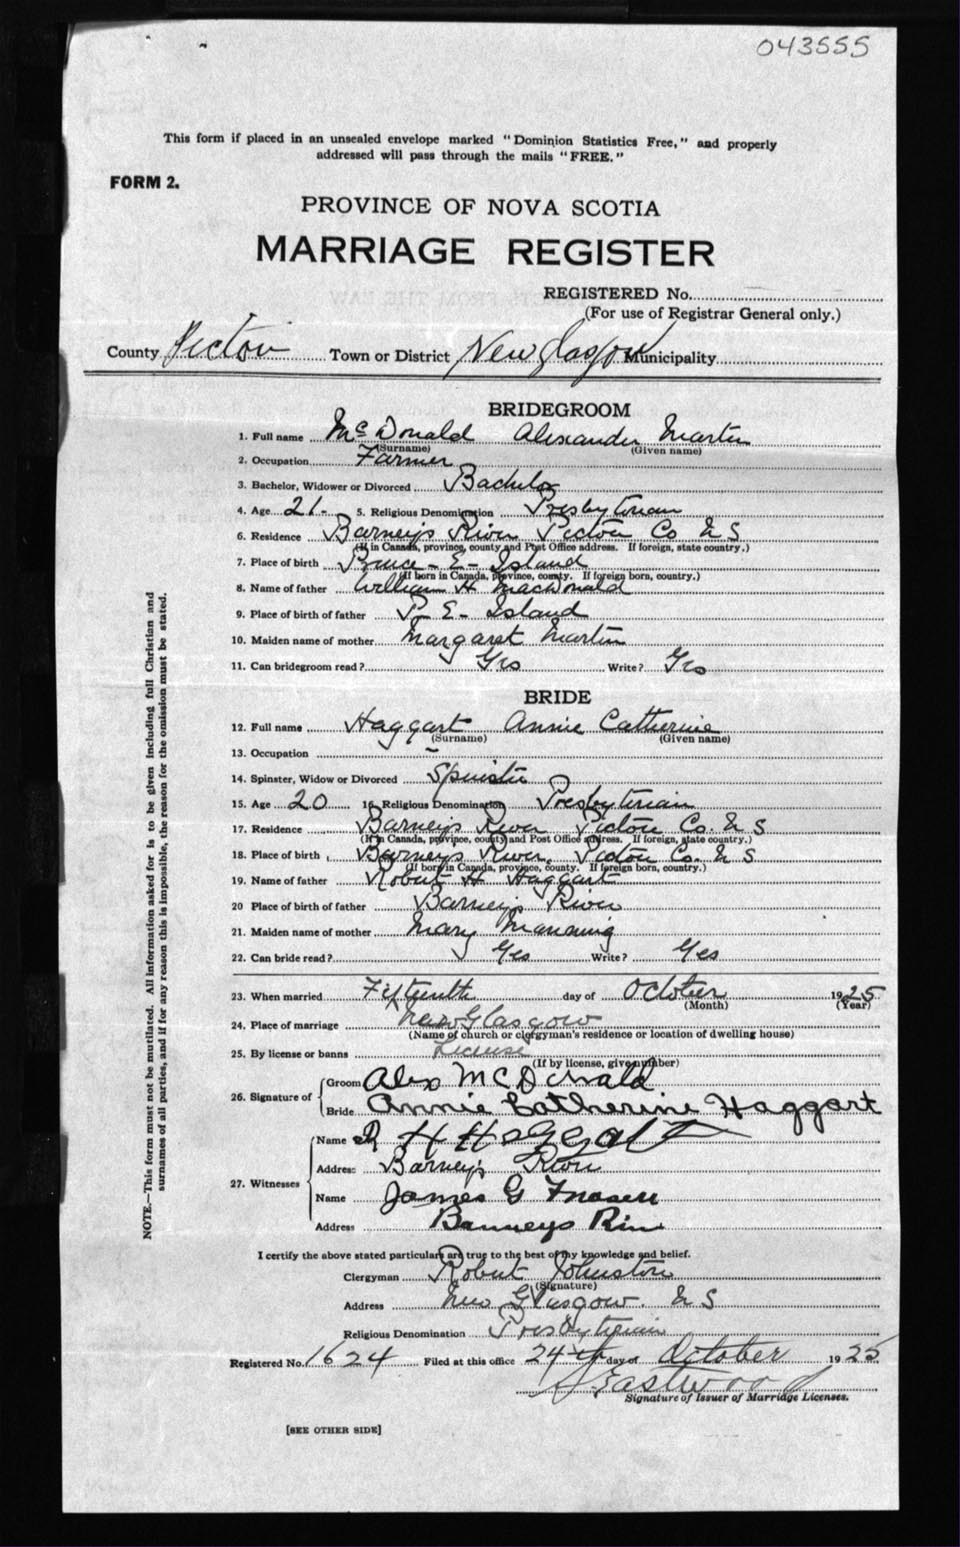 043555
This form if placed in an unsealed envelope marked "Dominion Statistics Free," and properly
addressed will pass through the mails "FREE."
FORM 2.
PROVINCE OF NOVA SCOTIA
MARRIAGE REGISTER
REGISTERED No.
(For use of Registrar General only.)
County Pictou Town or District New Glasgow Municipality
BRIDEGROOM
1. Full name McDonald Alexander Martin
(Surname) (Given name)
2. Occupation Farmer
3. Bachelor, Widower or Divorced Bachelor
4. Age 21- 5. Religious Denomination Presbyterian
6. Residence Barneys River Pictou Co N S
(If in Canada, province, county and Post Office address. If foreign, state country.)
7. Place of birth Prince - E - Island
(If born in Canada, province, county. If foreign born, country.)
8. Name of father William H MacDonald
9. Place of birth of father P- E- Island
10. Maiden name of mother Margaret Martin
11. Can bridegroom read? Yes Write? Yes
BRIDE
12. Full name Haggart Annie Catherine
(Surname) (Given name)
13. Occupation
14. Spinster, Widow or Divorced Spinster
15. Age 20 16. Religious Denomination Presbyterian
17. Residence Barneys River Pictou Co. N S
(If in Canada, province, county and Post Office address. If foreign, state country.)
18. Place of birth Barneys River, Pictou Co. N S
(If born in Canada, province, county. If foreign born, country.)
19. Name of father Robert H Haggart
20 Place of birth of father Barneys River
21. Maiden name of mother Mary Manning
22. Can bride read? Yes Write? Yes
23. When married Fifteenth day of October 1925
(Month) (Year)
24. Place of marriage New Glasgow
(Name of church or clergyman's residence or location of dwelling house)
25. By license or banns License
(If by license, give number)
26. Signature of Groom Alex McDonald
Bride Annie Catherine Haggart
27. Witnesses Name R H Haggart
Address Barney's River
Name James G Fraser
Address Barneys Riv
I certify the above stated particulars are true to the best of my knowledge and belief.
Clergyman Robert Johnston
(Signature)
Address New Glasgow. N S
Religious Denomination Presbyterian
Registered No. 1624 Filed at this office 24th day of October 1925
Eastwood
Signature of Issuer of Marriage Licenses.
[SEE OTHER SIDE]
NOTE.—This form must not be mutilated. All information asked for is to be given including full Christian and
surnames of all parties, and if for any reason this is impossible, the reason for the omission must be stated.